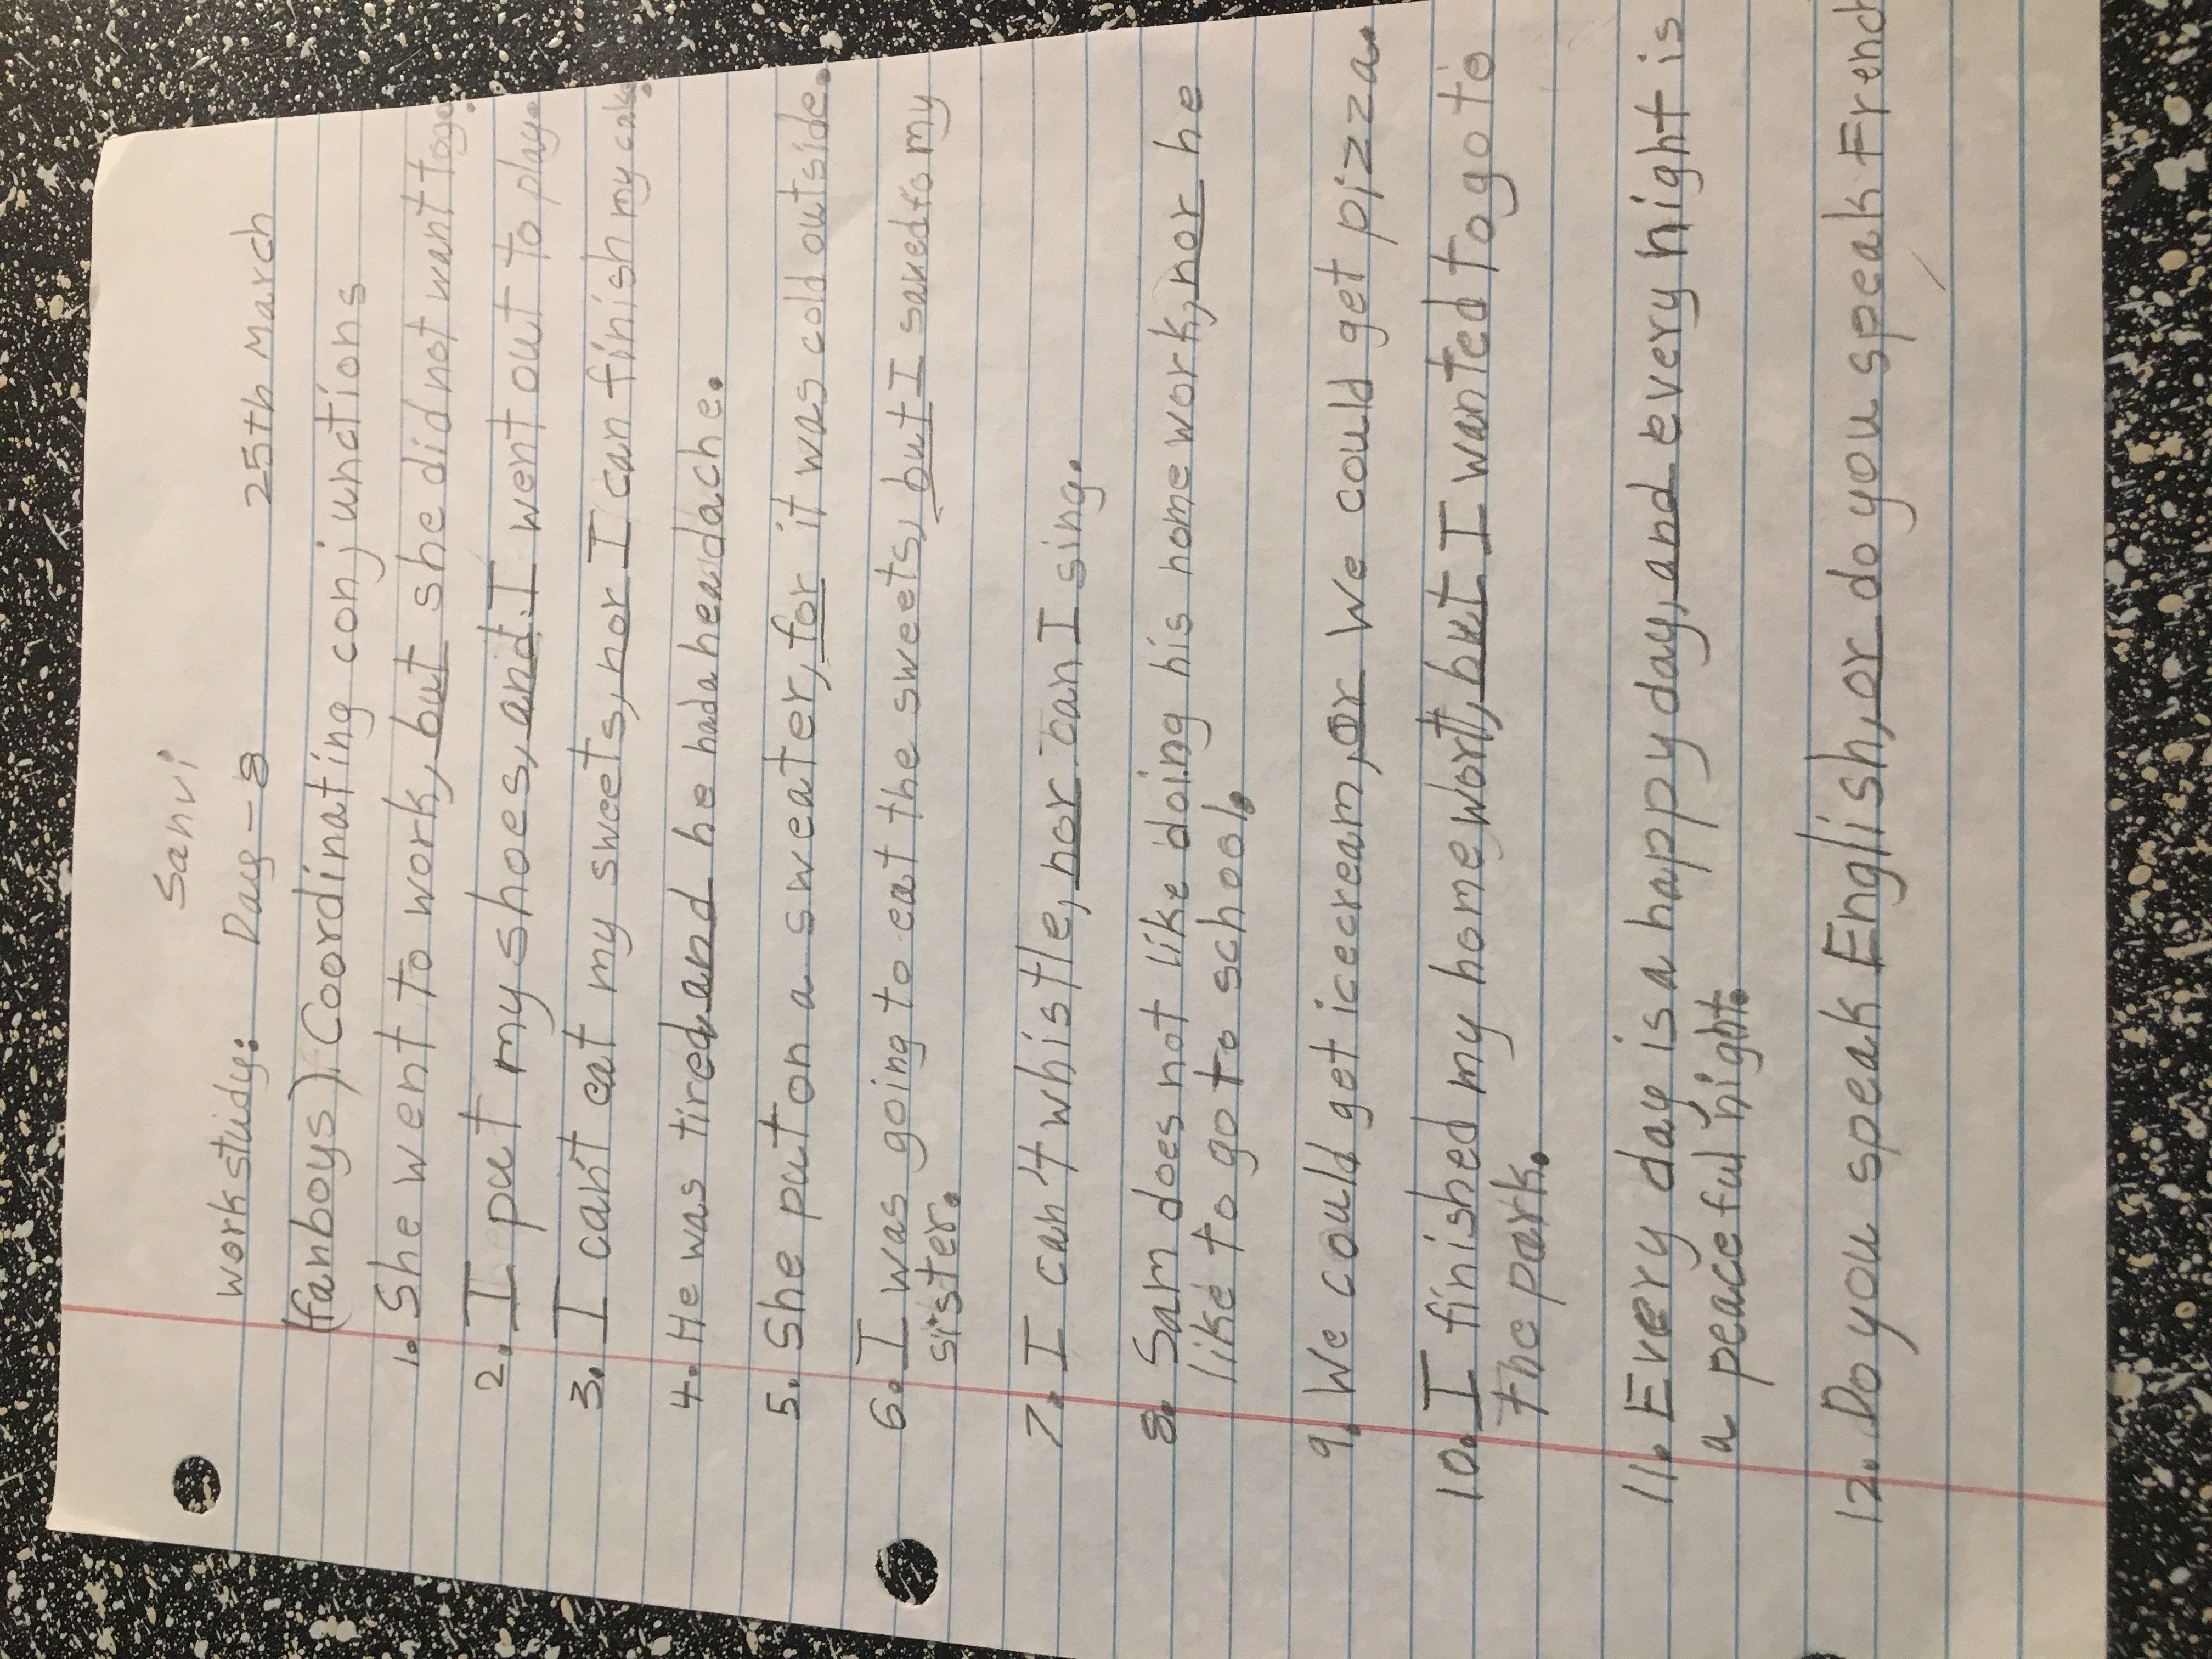 Sanvi
work study: Day - 8 25th March
(fanboys). Coordinating conjunctions
1. She went to work, but she did not want to go.
2. I put my shoes, and I went out to play.
3. I can't eat my sweets, nor I can finish my cake.
4. He was tired and he had a headache.
5. She put on a sweater, for it was cold outside.
6. I was going to eat the sweets, but I saved to my
sister.
7. I can't whistle, nor can I sing.
8. Sam does not like doing his home work, nor he
like to go to school.
9. We could get icecream, or We could get pizza.
10. I finished my home work, but I wanted to go to
the park.
11. Every day is a happy day, and every night is
a peaceful night.
12. Do you speak English, or do you speak French